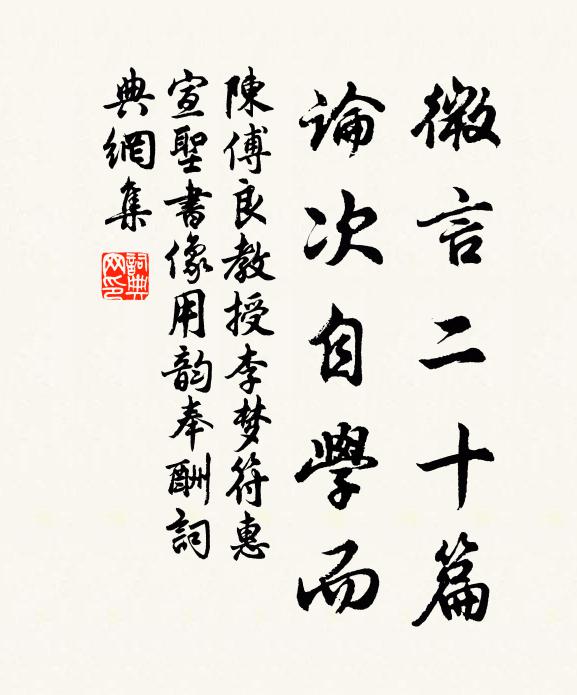 微言二十篇
論次自學而
陳傅良教授李梦符惠
宣聖書像用韵奉酬詞
典網集
詞典
网印